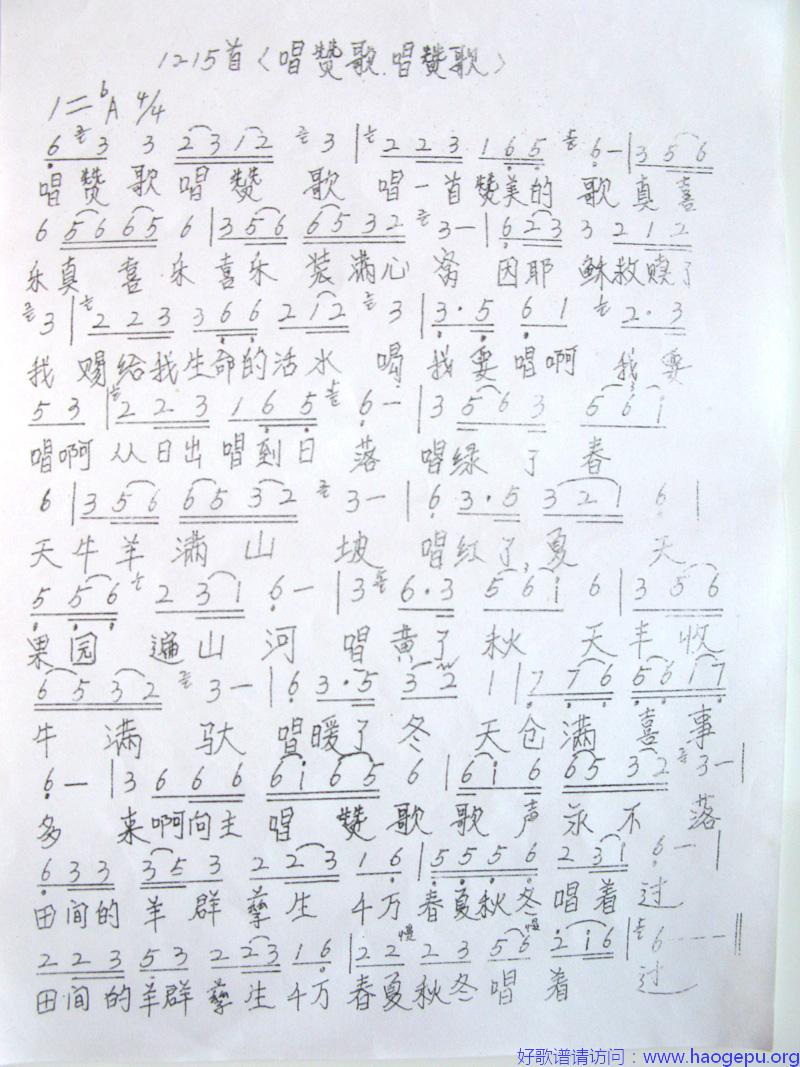 1215首〈唱赞歌.唱赞歌〉
1=ᵇA 4/4
6 3 3 2312 3 | 2 23 165 6- | 356
唱赞歌唱赞歌唱一首赞美的歌真喜
6 56665 6 | 356 6532 3- | 623 3 212
乐真喜乐喜乐装满心窝因耶稣救赎了
3 | 2 23 366 212 3 | 3·5 61 2·3
我赐给我生命的活水喝我要唱啊我要
53 | 2 23 165 6- | 3563 56i
唱啊从日出唱到日落唱绿了春
6 | 356 6532 3- | 6 3·5 321 6 |
天牛羊满山坡唱红了,夏天
556 231 6- | 3 6·3 56i 6 | 356
果园遍山河唱黄了秋天丰收
6532 3- | 6 3·5 32 1 | 776 5617
牛满驮唱暖了冬天仓满喜事
6- | 3666 6i65 6 | 6i6 6532 3- |
多来啊向主唱赞歌歌声永不落
633 353 223 16 | 5556 231 6- |
田间的羊群孳生千万春夏秋冬唱着过
223 53 223 16 | 22慢23 56慢 2i6 | 6--- ||
田间的羊群孳生千万春夏秋冬唱着过
好歌谱请访问：www.haogepu.org